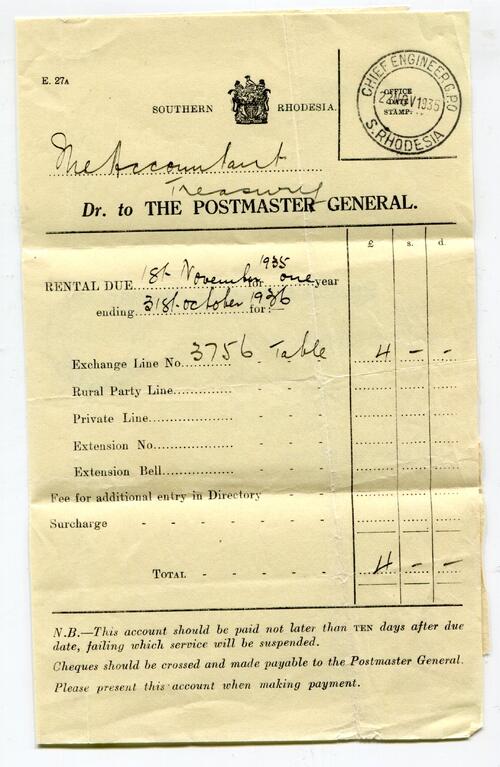 E. 27A
SOUTHERN RHODESIA.
CHIEF ENGINEER G.P.O
OFFICE
DATE
STAMP
NOV 1935
S. RHODESIA
The Accountant
Treasury
Dr. to THE POSTMASTER GENERAL.
£ s. d.
RENTAL DUE 1st November 1935 for one year
ending 31st October 1936 for:—
Exchange Line No. 3756 Table 4 - -
Rural Party Line
Private Line
Extension No.
Extension Bell
Fee for additional entry in Directory
Surcharge
TOTAL 4 - -
N.B.—This account should be paid not later than TEN days after due
date, failing which service will be suspended.
Cheques should be crossed and made payable to the Postmaster General.
Please present this account when making payment.